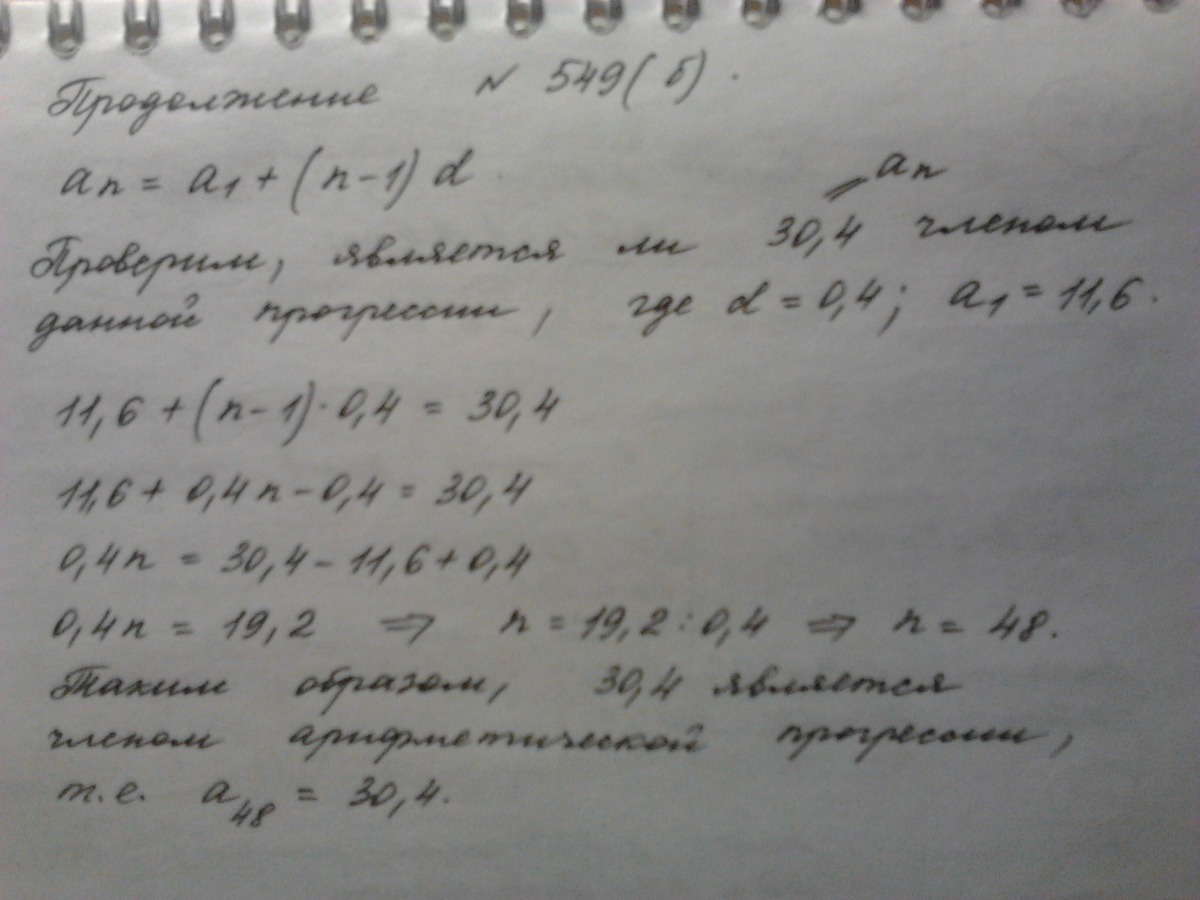 Продолжение № 549(б).
aₙ = a₁ + (n-1) d
= aₙ
Проверим, является ли 30,4 членом
данной прогрессии, где d = 0,4; a₁ = 11,6.
11,6 + (n-1)·0,4 = 30,4
11,6 + 0,4n - 0,4 = 30,4
0,4n = 30,4 - 11,6 + 0,4
0,4n = 19,2 ⇒ n = 19,2 : 0,4 ⇒ n = 48.
Таким образом, 30,4 является
членом арифметической прогрессии,
т.е. a₄₈ = 30,4.